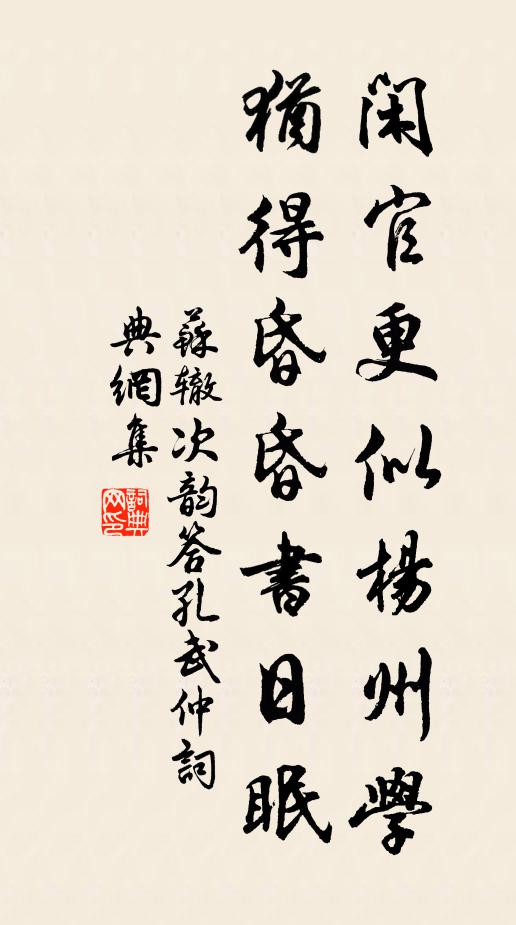 閑官更似楊州學
猶得昏昏書日眠
蘇轍次韵答孔武仲詞
典網集
詞典
网印